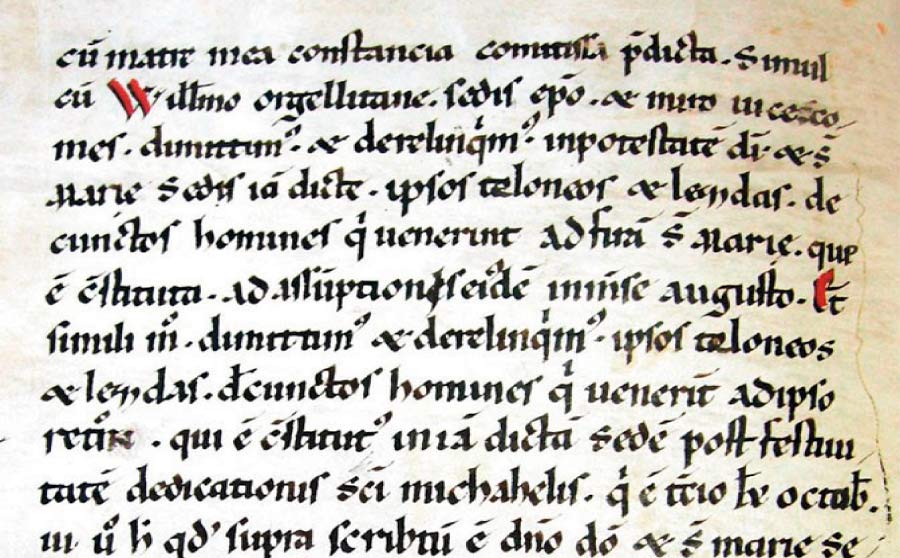 cū matre mea constancia comitissa p̄dicta. Simul
cū Willmo orgellitane. sedis ep̄o. & miro uicecō
mes. dimittimꝰ. & derelinq̄mꝰ. inpotestatē dī. & s̄
Marie Sedis iā dicte. ipsos teloneos & lezdas. de
cunctos homines q̄ uenerint ad firā s̄ Marie. que
ē c̄stituta. ad assūptionis eidē in m̄se augusto. Et
simili m̊. dimittimꝰ & derelinq̄mꝰ. ipsos teloneos
& lezdas. de cunctos homines q̄ uenerīt ad ipso
. qui ē c̄stitutꝰ in iā dictā sedē post festiui
tatē dedicationis sc̄i michahelis. q̄ ē t̄cio kł octub̄.
ū h̄ qd̄ supra scribtū ē dn̄o dō & s̄ marie se